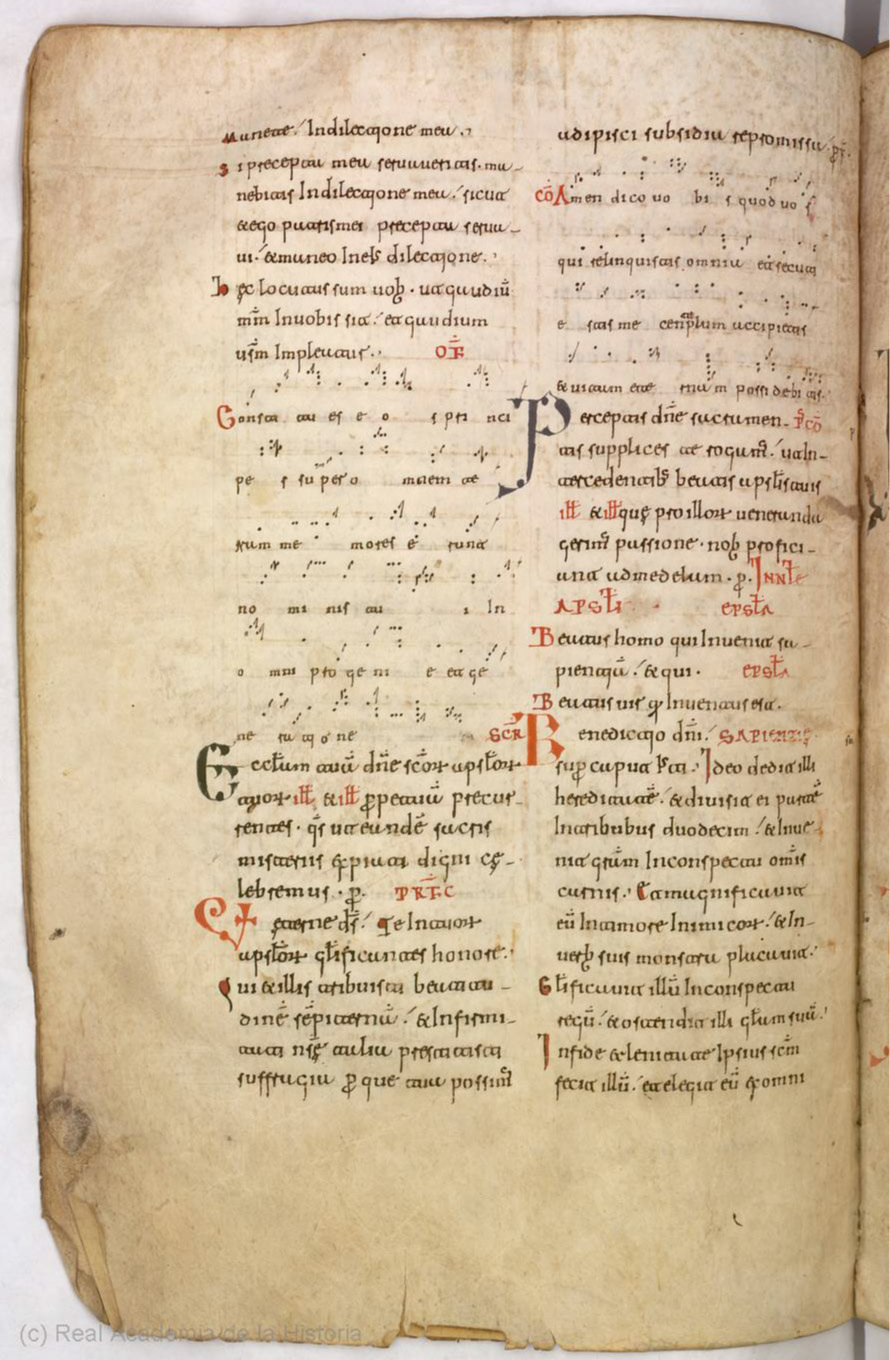 Manete. In dilectione mea.
Si precepta mea seruaueritis. ma-
nebitis In dilectione mea. sicut
& ego patris mei precepta serua-
ui. & maneo In eius dilectione.
Hęc locutus sum uob. ut gaudiū
m̄m In uobis sit. et gaudium
us̄m Impleatur. OF̄
Consti tu es e o s prin ci
pe s super o mnem te
rram me mores e runt
no mi nis tu i In
o mni pro ge ni e et ge
ne ra ti o ne SCR̄
tuā dn̄e sc̄or apstor
ill & ill ꝑpetuā precur-
rentes. qs̄ ut eundē sacris
misteriis expiati digni cę-
lebremus. p̄. PRF̄C
eterne ds̄. Te In
apstor gl̄ificantes honore.
Qui & illis tribuisti beatitu-
dinē sēpiternā. & Infirmi-
tati nr̄ę talia prestitisti
suffragia per que tua possim̄
adipisci subsidia repromissa. pr̄.
CŌ Amen dico uo bi s quod uo s
qui relinquistis omnia et secuti
e stis me centuplum accipietis
& uitam ete rna m possidebitis.
Perceptis dn̄e sacramen- PCŌ
tis supplices te rogam̄. ut In-
tercedentib beatis apstlis tuis
ill & ill que pro illor ueneranda
gerim̄ passione. nob profici-
ant ad medelam. p. INNL̄E
APSTLI EPSTLA
Beatus homo qui Inuenit sa-
pientiā. & qui. EPSTLA
Beatus uir qi Inuentus est.
Benedictio dn̄i. SAPIENTIE
super caput Ideo dedit illi
hereditatē. & diuisit ei partē
In tribubus duodecim. & Inue-
nit grām In conspectu om̄is
carnis. Et magnificauit
eū In timore Inimicor. & In
uerb suis monstra placauit.
Gl̄ificauit illū In conspectu
regū. & ostendit illi gl̄am suā.
In fide & lenitate Ipsius sc̄m
fecit illū. et elegit eū ex omni
(c) Real Academia de la Historia